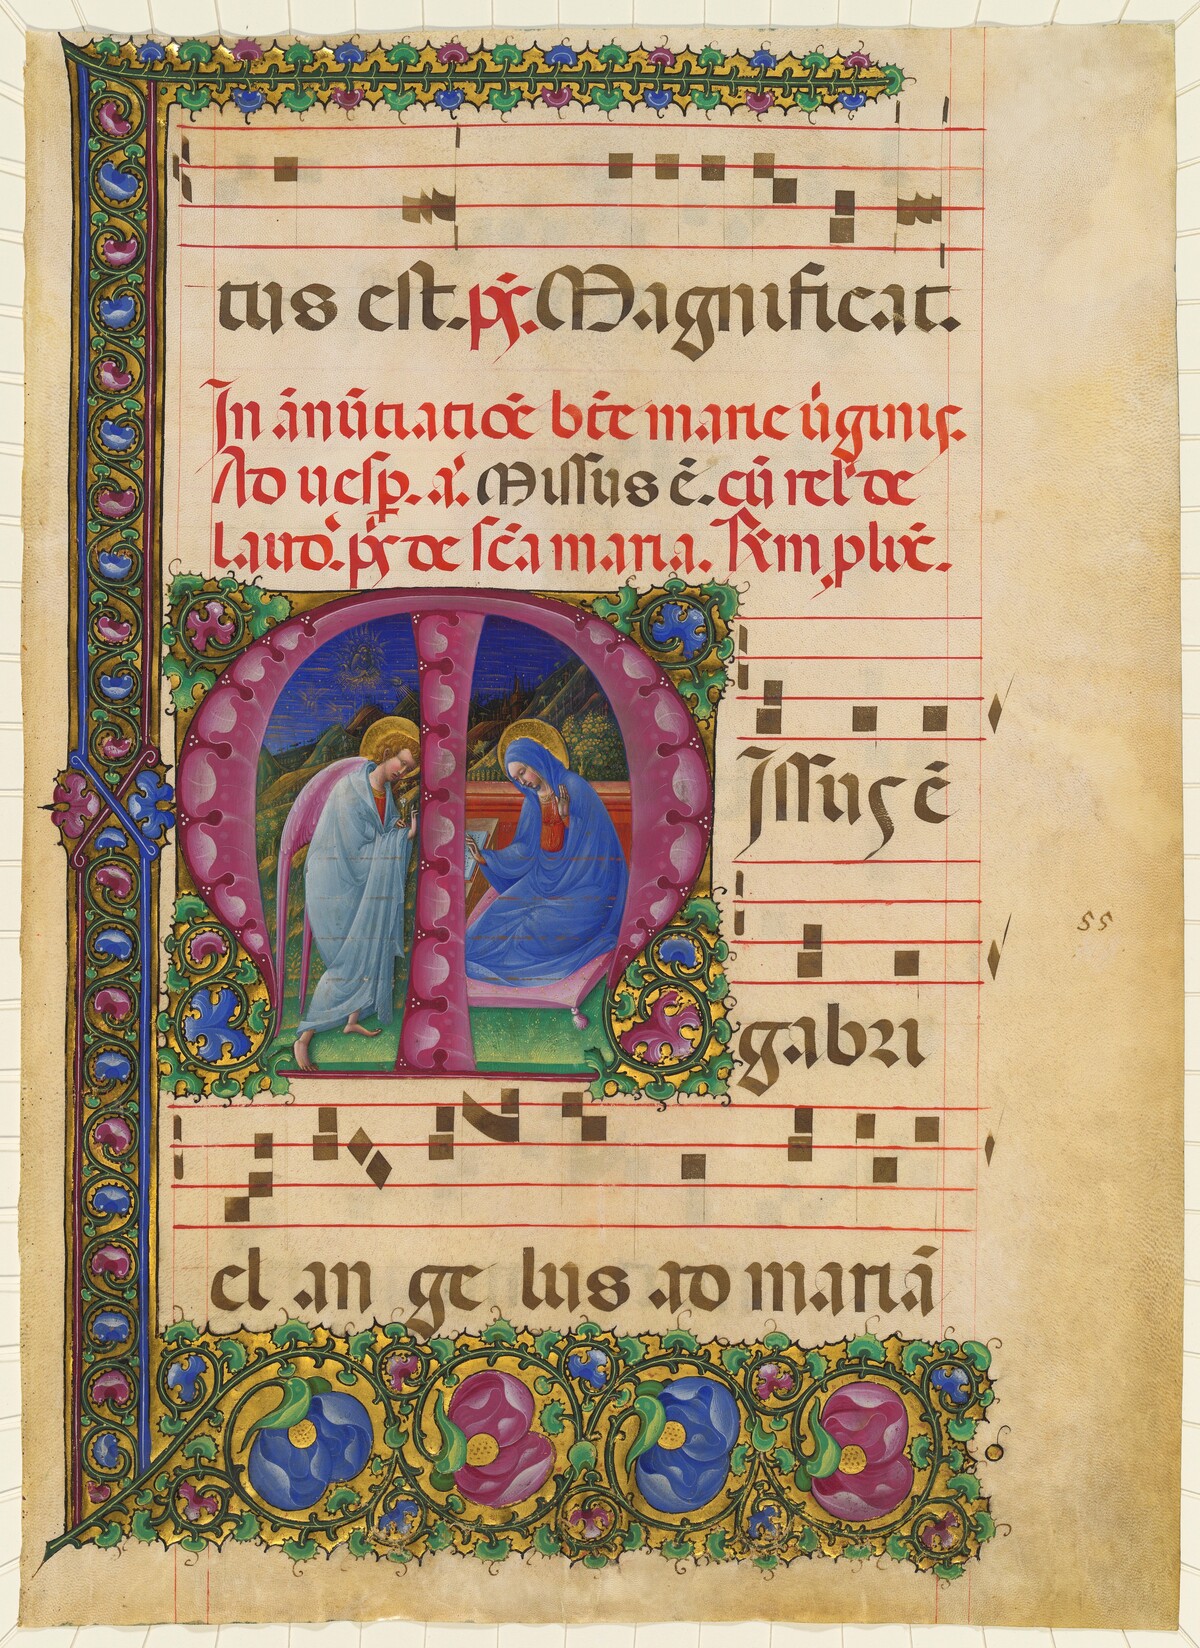 tus est. ps. Magnificat.
In ānūtiatiōe btē marie v̄ginis.
Ad uesp. a. Missus ē. cū rel' de
laud. ps de scā maria. Rm plix̄.
Missus ē
gabri
el an ge lus ad mariā
55